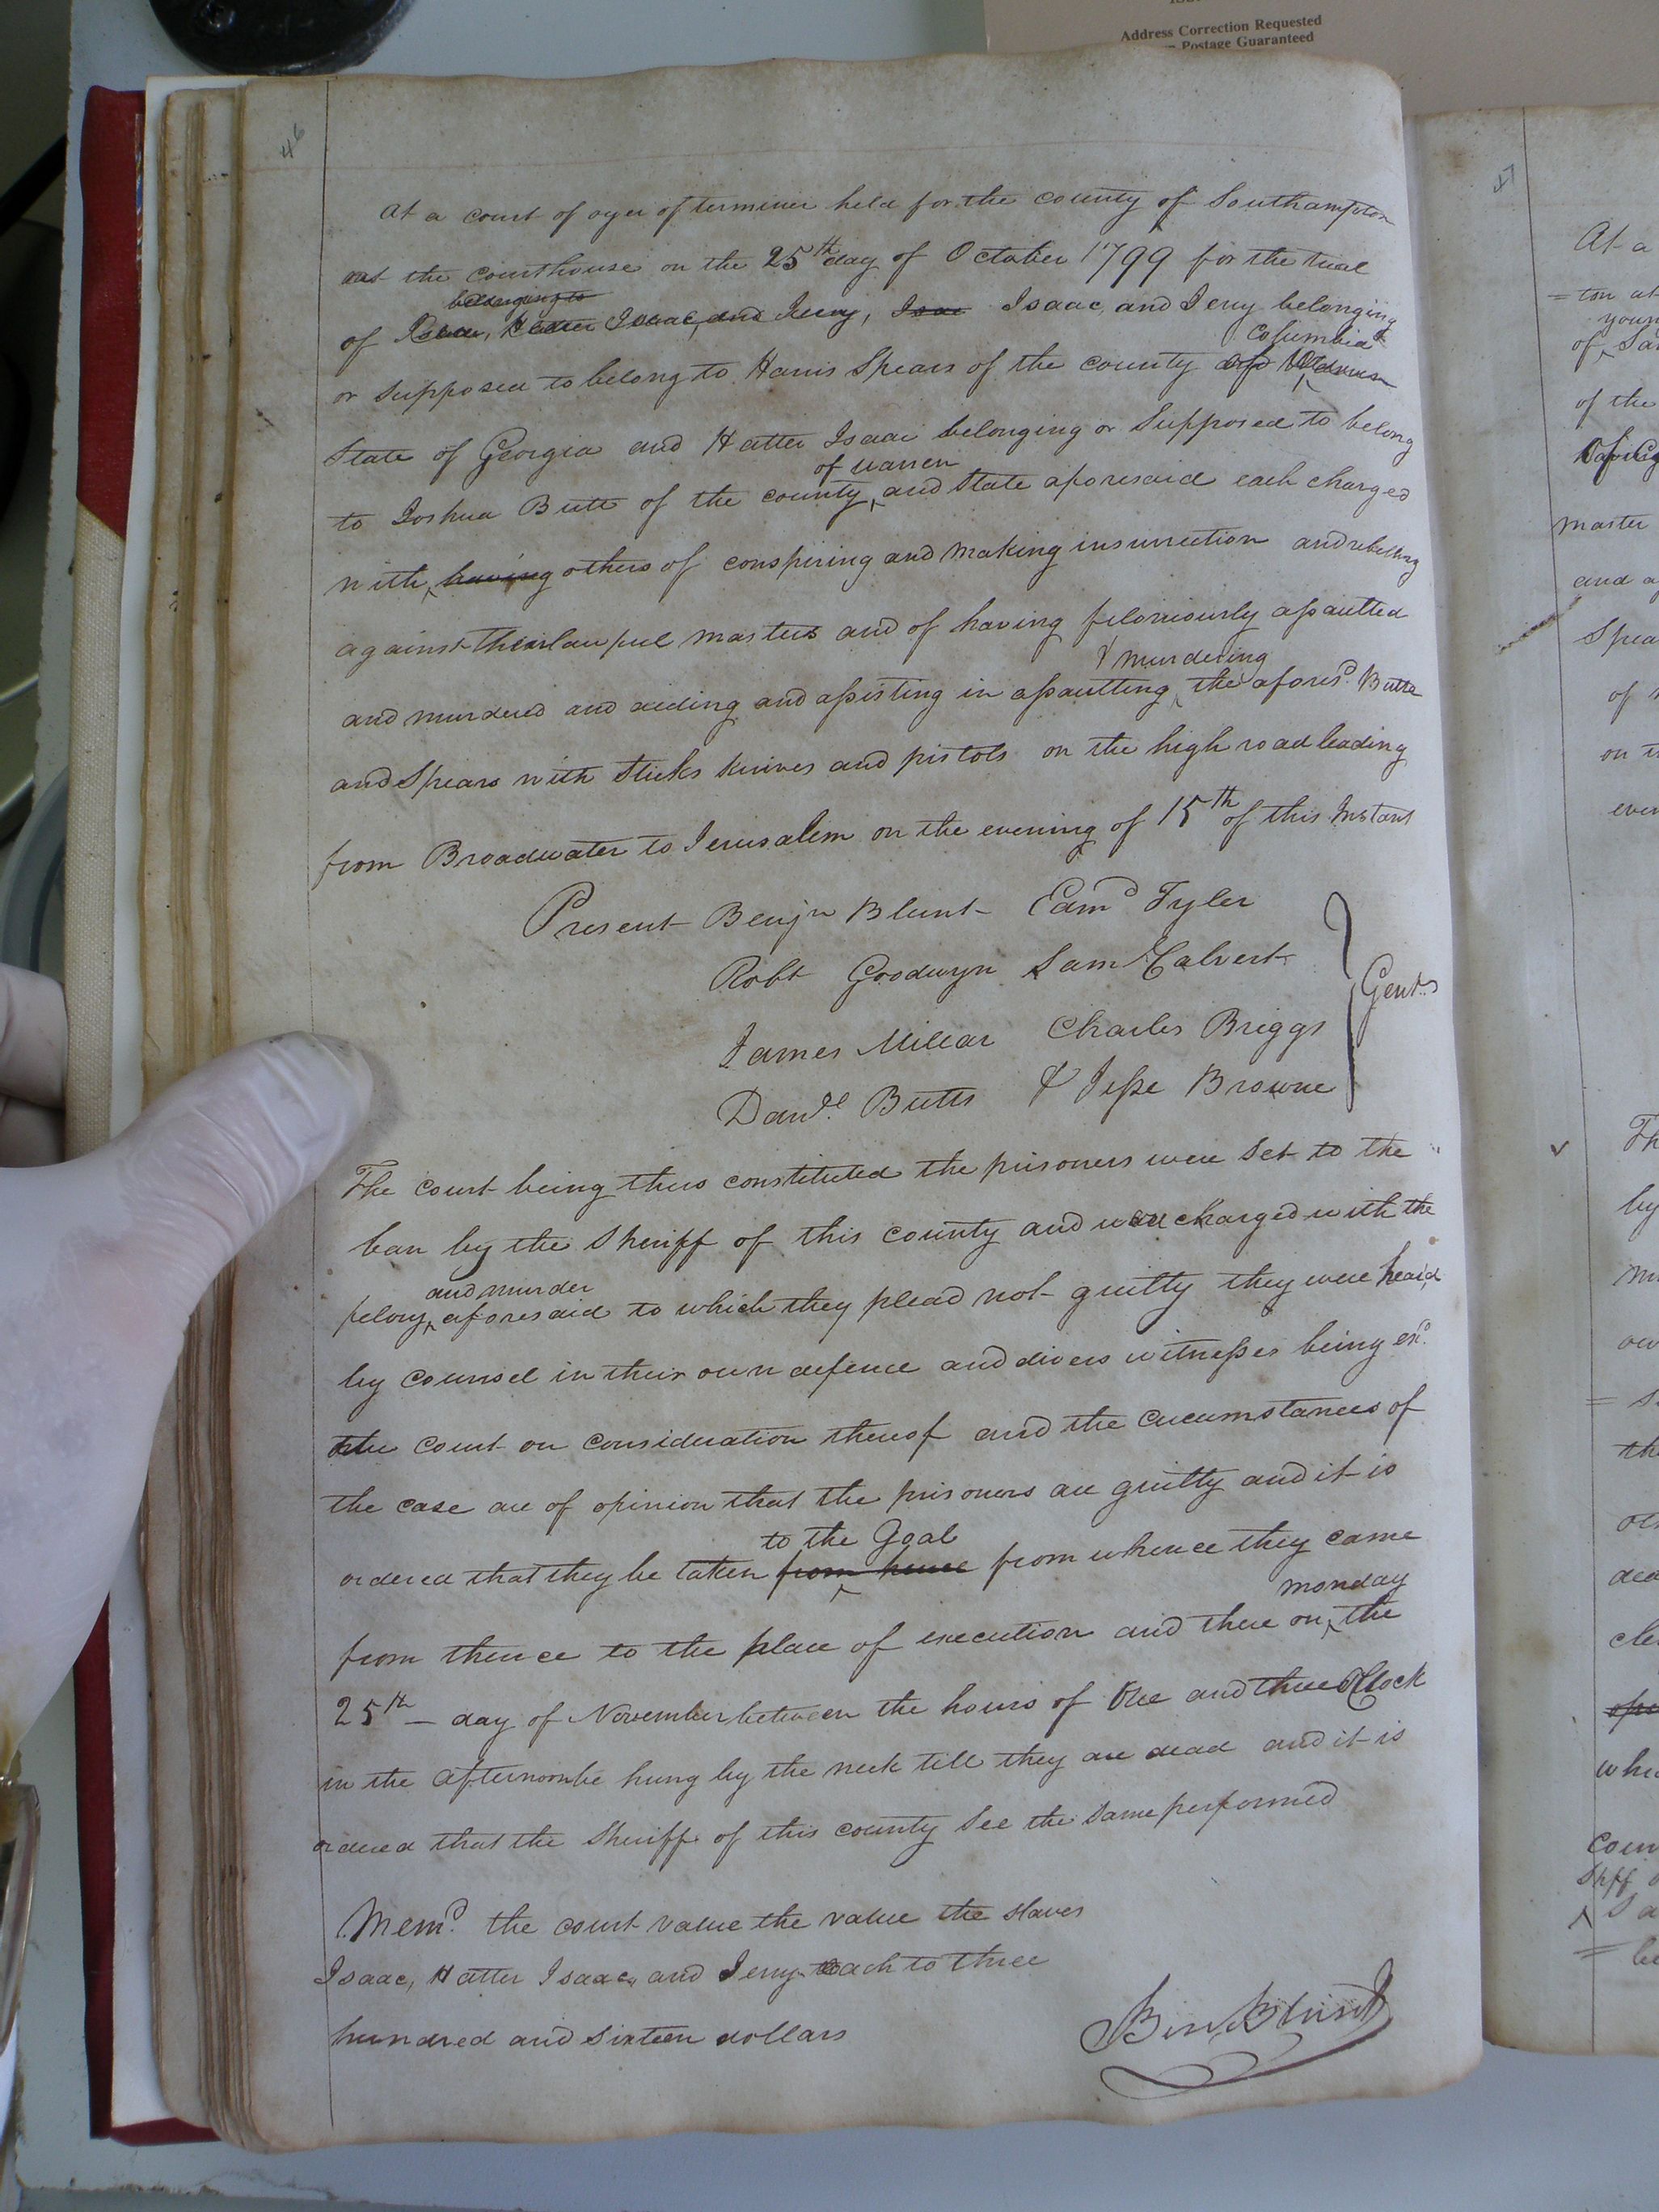 Address Correction Requested
Postage Guaranteed
46
At a court of oyer of terminer held for the county of Southampton
at the courthouse on the 25th day of October 1799 for the trial
belonging to
of Hatter Isaac, and Jerry, Isaac Isaac, and Jerry belonging
Columbia &
or supposed to belong to Harris Spears of the county of
State of Georgia and Hatter Isaac belonging or Supposed to belong
of warren
to Joshua Butt of the county and State aforesaid each charged
with having others of conspiring and making insurrection and rebelling
against their lawful masters and of having feloniously assaulted
& murdering
and murdered and aiding and assisting in assaulting the afores.d Butts
and Spears with sticks knives and pistols on the high road leading
from Broadwater to Jerusalem on the evening of 15th of this Instant
Present Benjn Blunt Edmd Tyler
Robt Goodwyn Saml Calvert
Gent.s
James Millar Charles Briggs
Danl. Butts & Jesse Browne
The court being thus constituted the prisoners were set to the
bar by the Sheriff of this county and were charged with the
and murder
felony aforesaid to which they plead not guilty they were heard
by counsel in their own defence and divers witnesses being ex.d
the court on consideration thereof and the circumstances of
the case are of opinion that the prisoners are guilty and it is
to the Goal
ordered that they be taken from hence from whence they came
monday
from thence to the place of execution and there on the
25th day of November between the hours of One and three OClock
in the afternoon be hung by the neck till they are dead and it is
ordered that the Sheriff of this county see the same performed
Mem.d the court value the value the slaves
Isaac, Hatter Isaac, and Jerry each to three
hundred and sixteen dollars
Ben Blunt
47
At a
= ton at
of
of the
master
and a
Spea
of
on
ever
Th
by
ow
th
dea
cle
whi